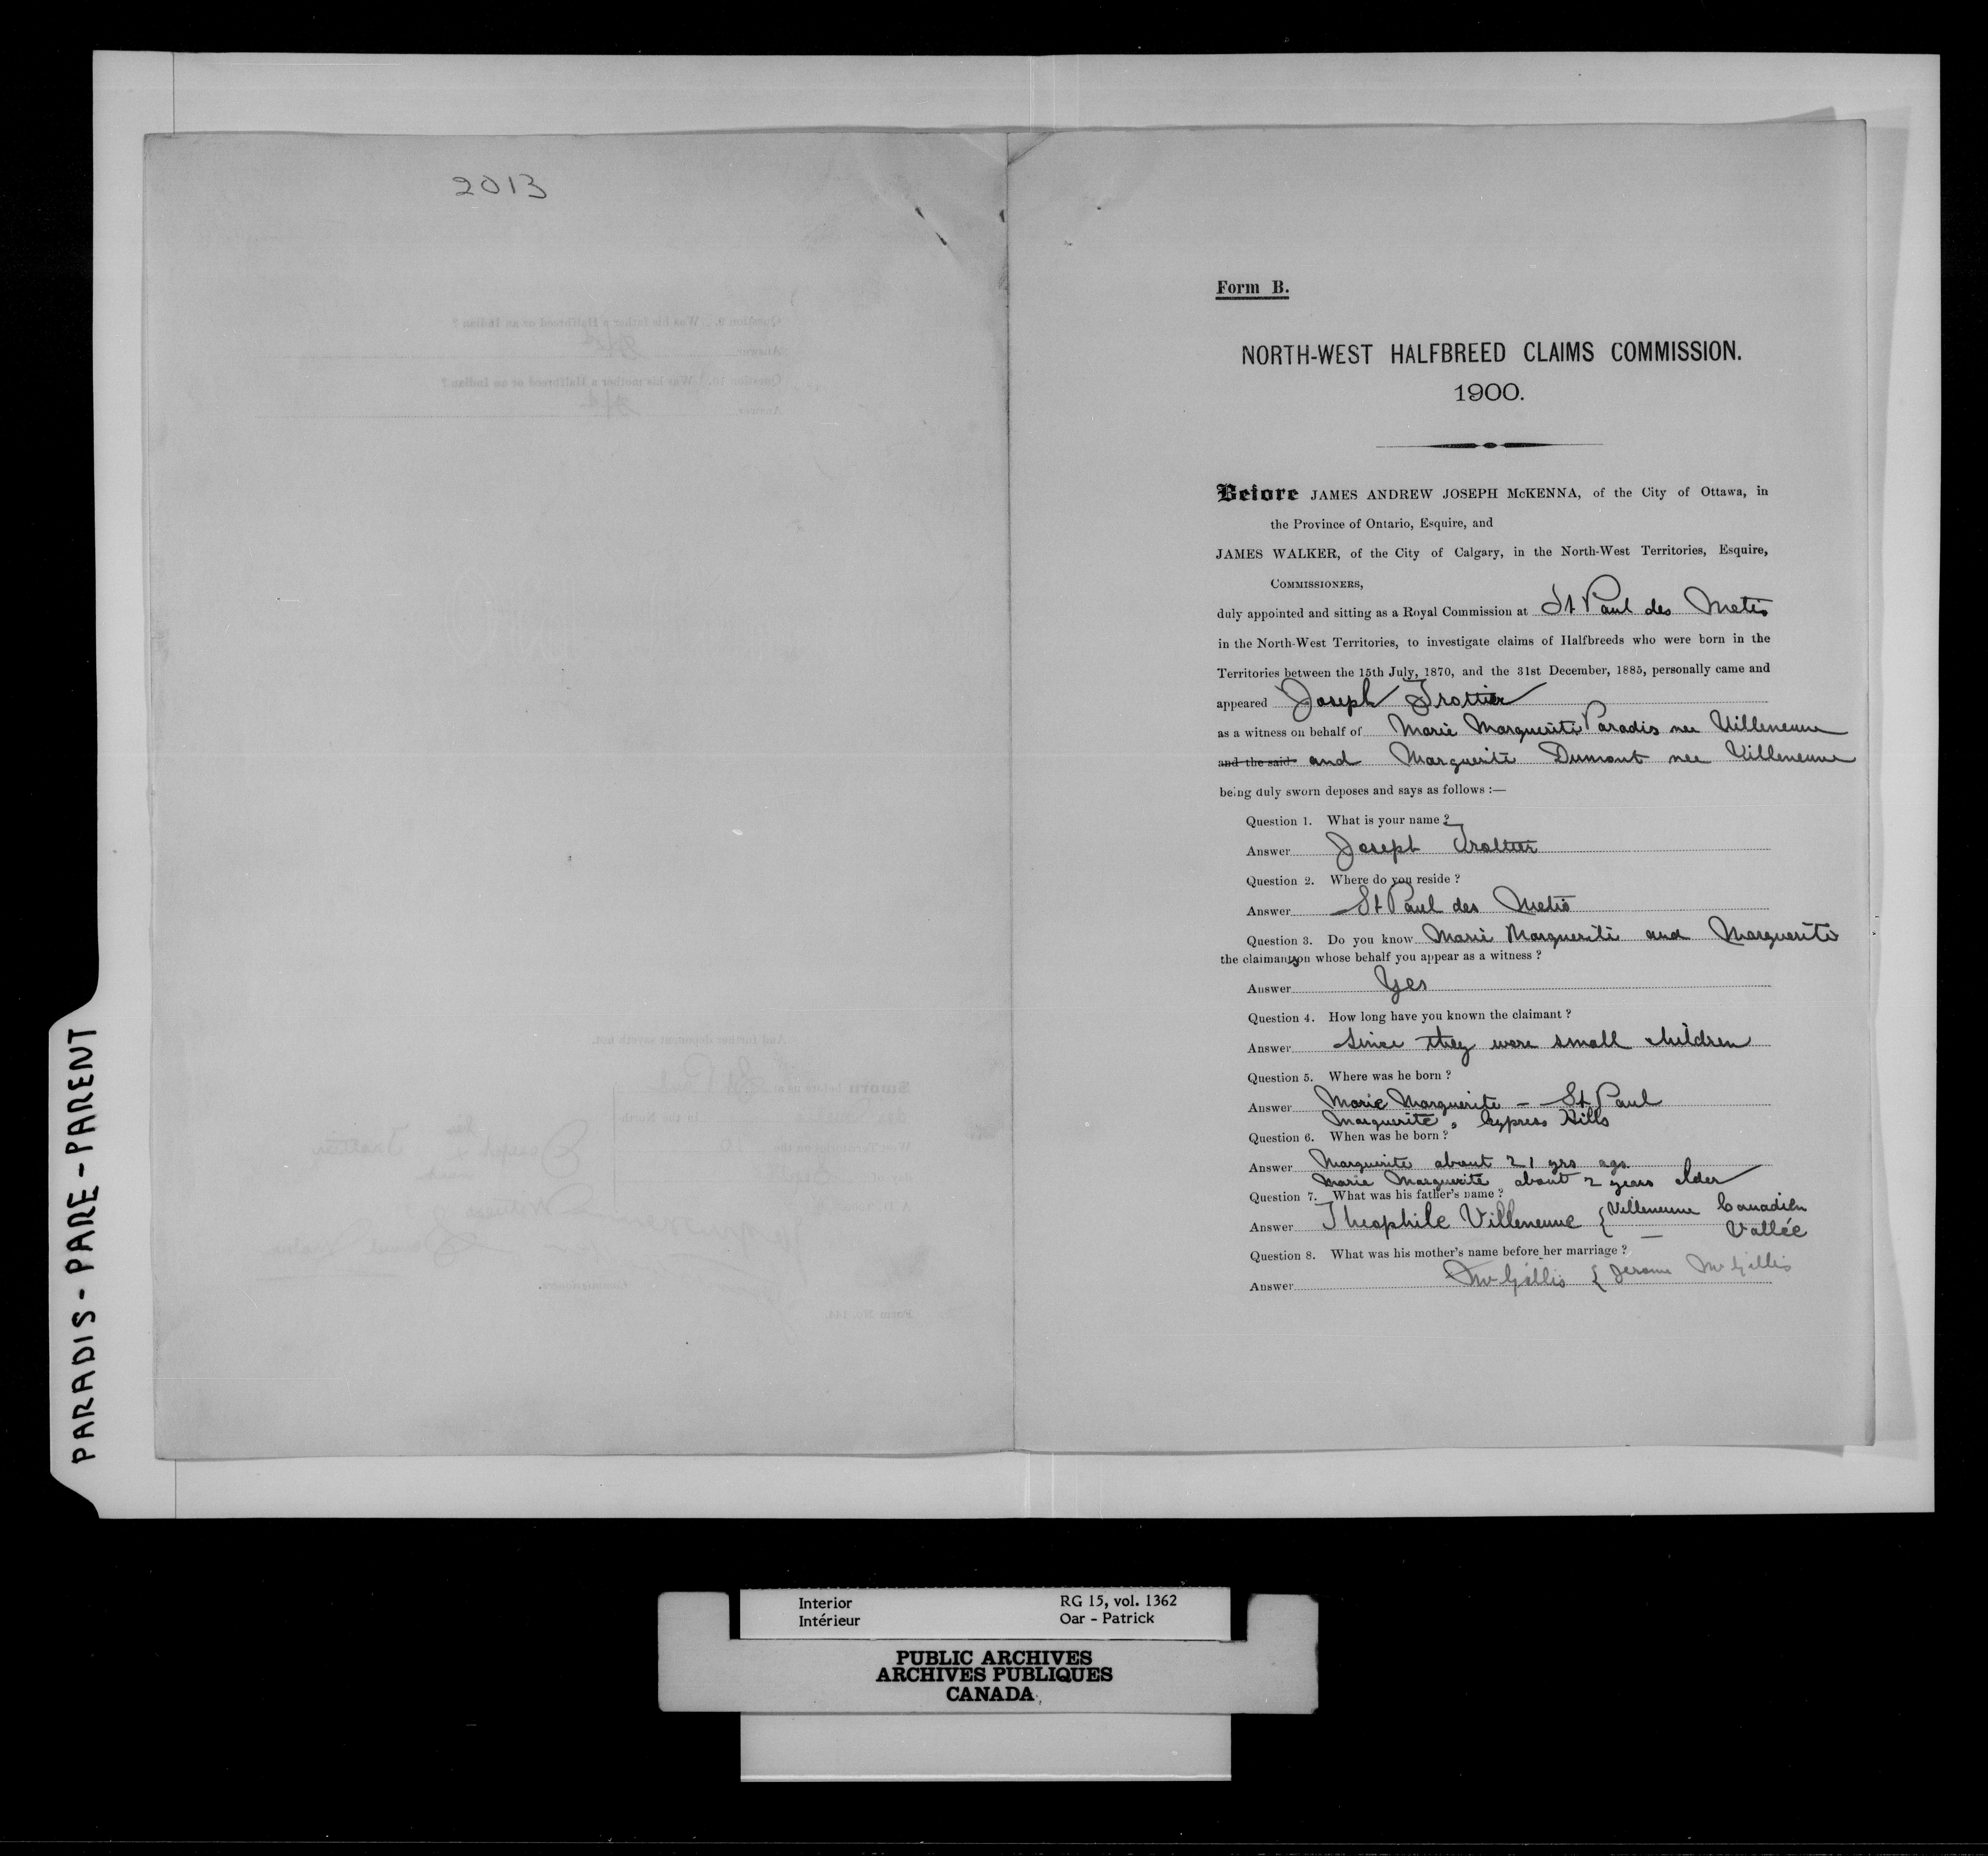 2013
Form B.
NORTH-WEST HALFBREED CLAIMS COMMISSION.
1900.
Before JAMES ANDREW JOSEPH McKENNA, of the City of Ottawa, in
the Province of Ontario, Esquire, and
JAMES WALKER, of the City of Calgary, in the North-West Territories, Esquire,
COMMISSIONERS,
duly appointed and sitting as a Royal Commission at St Paul des Metis
in the North-West Territories, to investigate claims of Halfbreeds who were born in the
Territories between the 15th July, 1870, and the 31st December, 1885, personally came and
appeared Joseph Trottier
as a witness on behalf of Marie Marguerite Paradis nee Villeneuve
and the said and Marguerite Dumont nee Villeneuve
being duly sworn deposes and says as follows :—
Question 1. What is your name ?
Answer Joseph Trottier
Question 2. Where do you reside ?
Answer St Paul des Metis
Question 3. Do you know Marie Marguerite and Marguerite
the claimants on whose behalf you appear as a witness ?
Answer Yes
Question 4. How long have you known the claimant ?
Answer Since they were small children
Question 5. Where was he born ?
Answer Marie Marguerite – St Paul
Marguerite " Cypress Hills
Question 6. When was he born ?
Answer Marguerite about 21 yrs ago
Marie Marguerite about 2 years older
Question 7. What was his father's name ?
Answer Theophile Villeneuve { Villeneuve Canadien
— Vallée
Question 8. What was his mother's name before her marriage ?
Answer McGillis { Jerome McGillis
PARADIS - PARE - PARENT
Interior RG 15, vol. 1362
Intérieur Oar - Patrick
PUBLIC ARCHIVES
ARCHIVES PUBLIQUES
CANADA